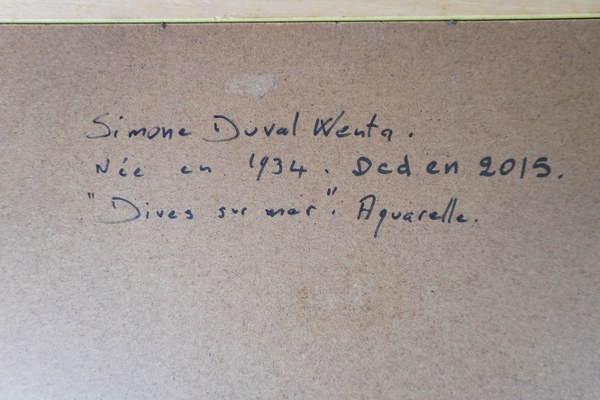 Simone Duval Wenta.
Née en 1934. Dcd en 2015.
"Dives sur mer". Aquarelle.